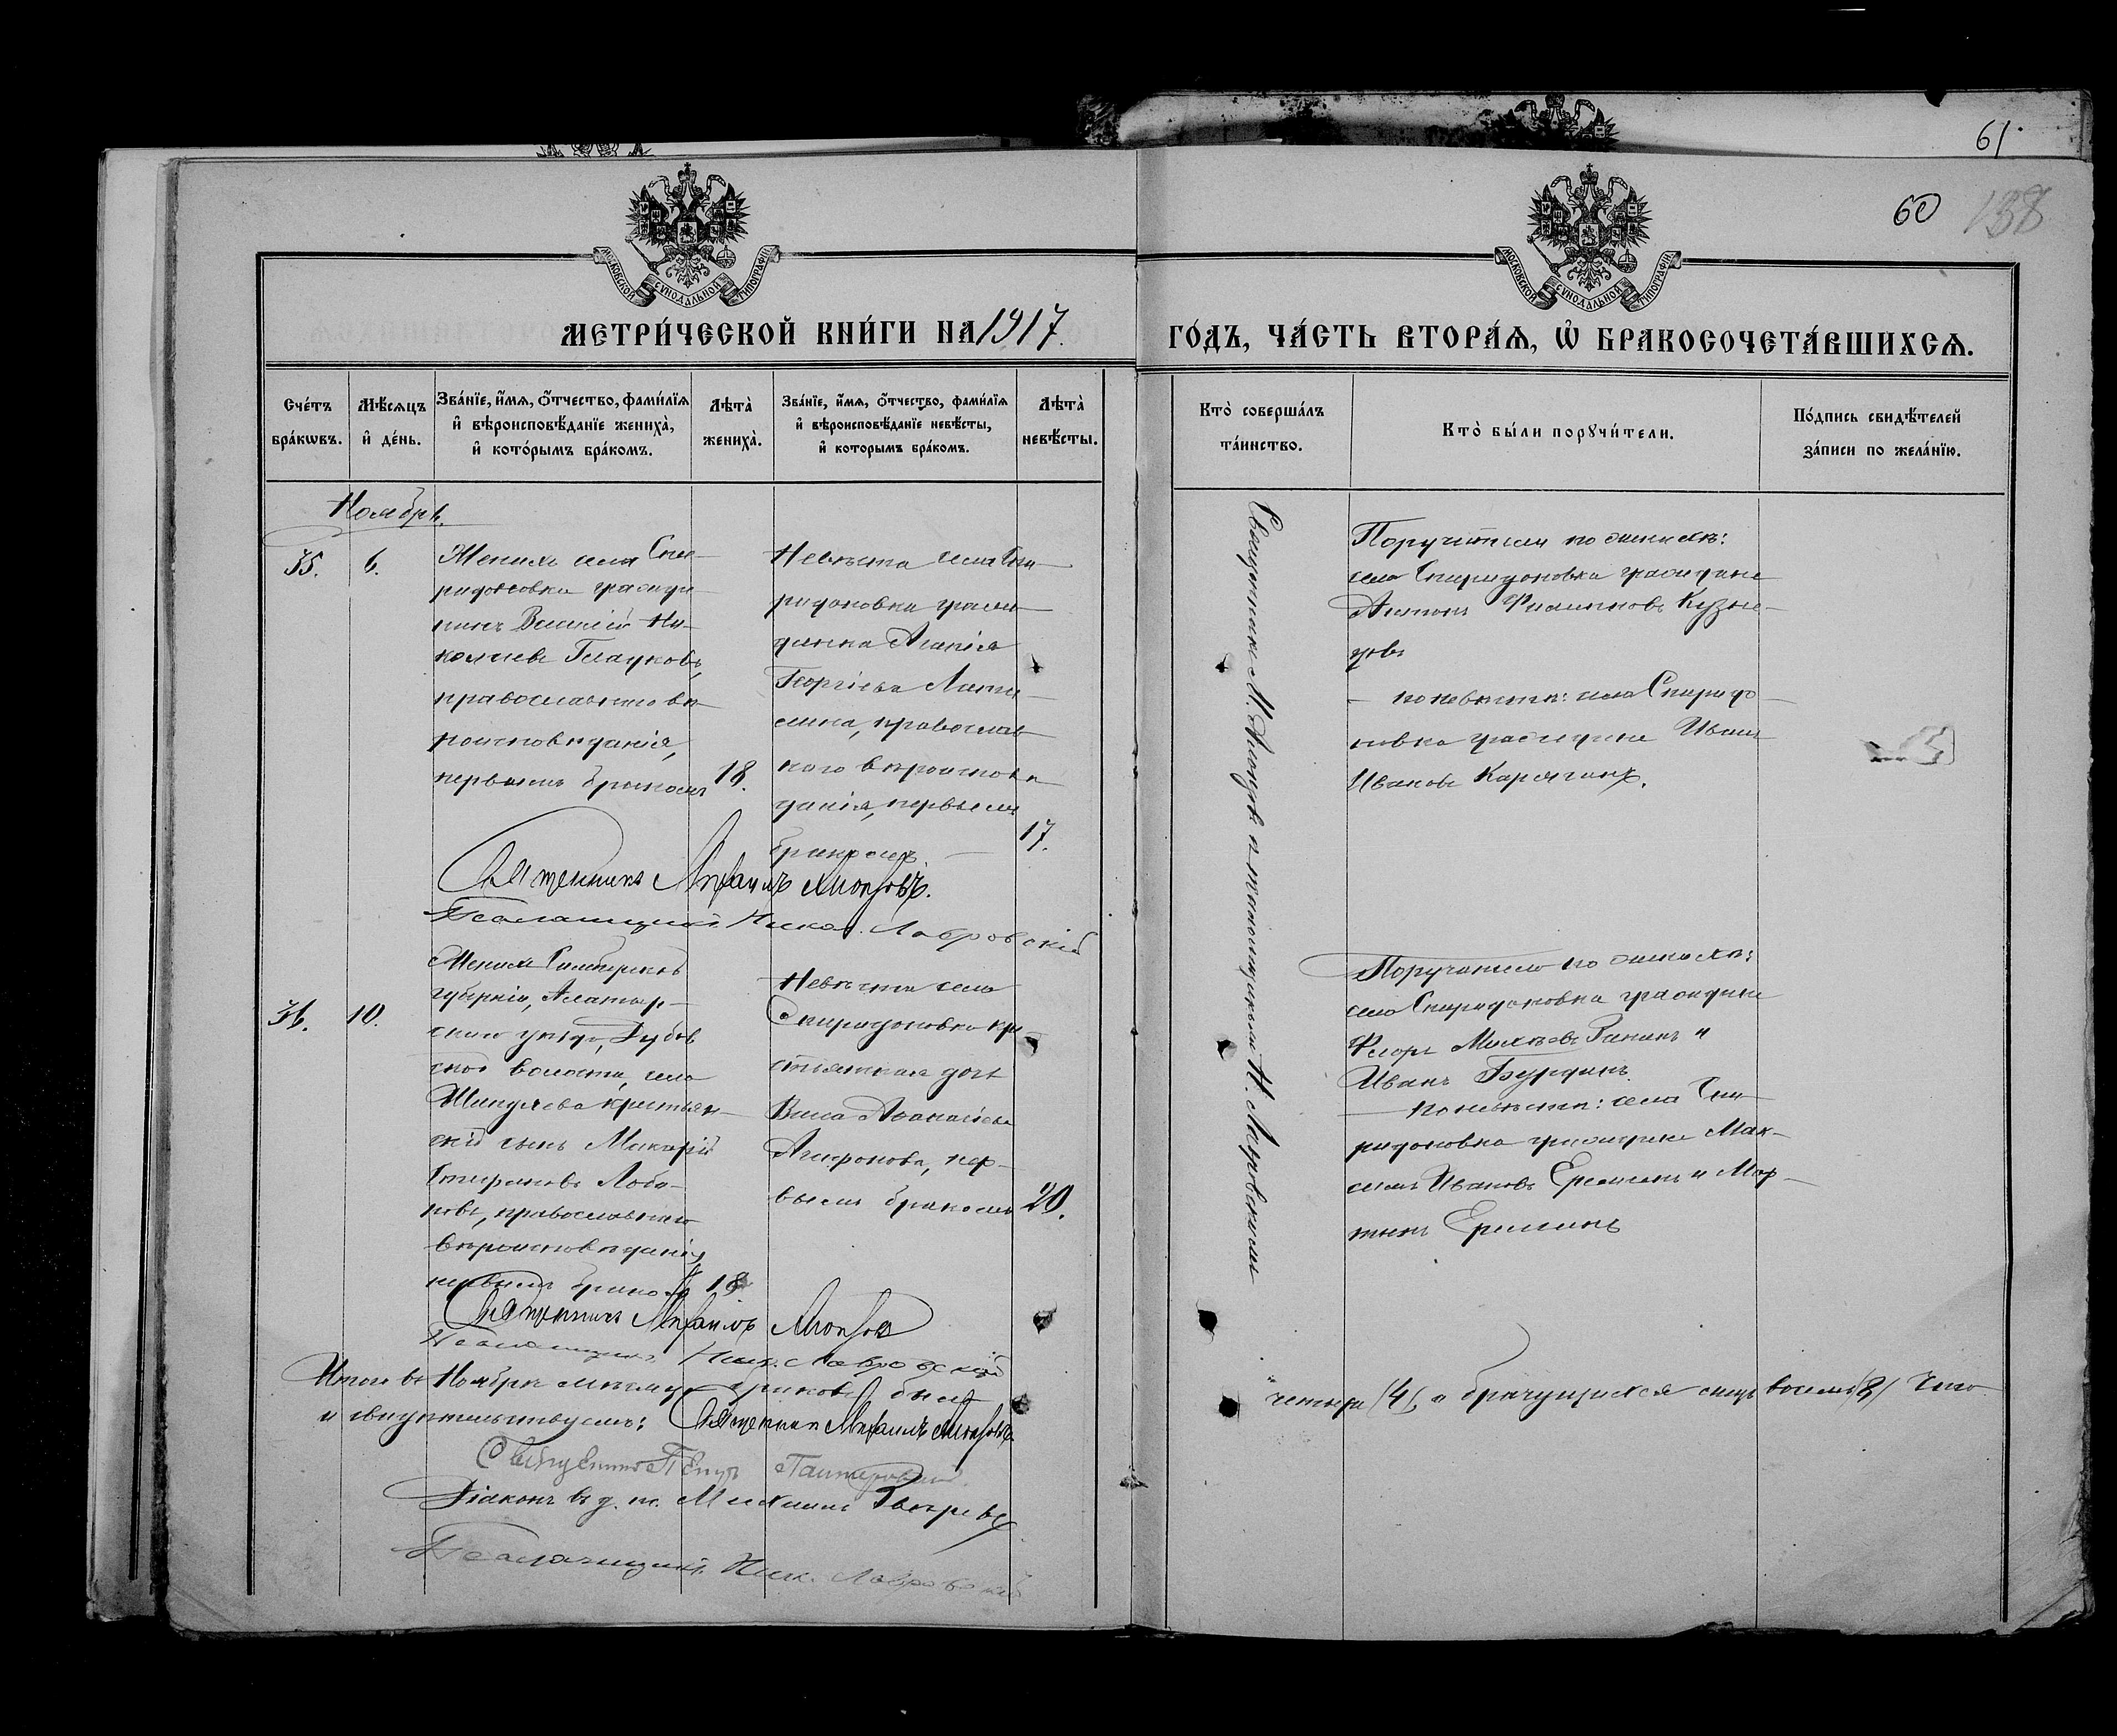 61.
60 138
МОСКОВСКОЙ СѴНОДАЛЬНОЙ ТИПОГРАФІИ
МОСКОВСКОЙ СѴНОДАЛЬНОЙ ТИПОГРАФІИ
МЕТРИ́ЧЕСКОЙ КНИ́ГИ НА 1917.
ГО́ДЪ, ЧА́СТЬ ВТОРА́Ѧ, Ѽ БРАКОСОЧЕТА́ВШИХСѦ.
Сче́тъ
бра́кѡвъ.
Мѣ́сѧцъ
и҆ де́нь.
Зва́нїе, и҆́мѧ, ѻ҆́тчество, фами́лїѧ
и҆ вѣроисповѣ́данїе жениха̀,
и҆ кото́рымъ бра́комъ.
Лѣта̀
жениха̀.
Зва́нїе, и҆́мѧ, ѻ҆́тчество, фами́лїѧ
и҆ вѣроисповѣ́данїе невѣ́сты,
и҆ которымъ бра́комъ.
Лѣта̀
невѣ́сты.
Кто̀ соверша́лъ
та́инство.
Кто̀ бы́ли порꙋчи́тели.
По́дпись свидѣ́телей
за́писи по жела́нїю.
Ноябрь.
35.
6.
Женихъ села Спи-
ридоновки гражда-
нинъ Василій Ни-
колаевъ Глауковъ,
православнаго вѣ-
роисповѣданія,
первымъ бракомъ
18.
Невѣста села Спи-
ридоновки граж-
данка Агапія
Георгіева
православ-
наго вѣроисповѣ-
данія, первымъ
бракомъ.
17.
Священникъ Михаилъ
Псаломщикъ Никол. Лавровскій
Священникъ М. и псаломщикомъ Н. Лавровскимъ
Поручители по женихѣ:
села Спиридоновки граждане
Филипповъ Кузне-
цовъ
— по невѣстѣ: села Спиридо-
новки гражданинъ Иванъ
Ивановъ Карягинъ.
36.
10.
Женихъ Симбирской
губерніи, Алатыр-
скаго уѣзда,
волости, села
крестьян-
скій сынъ Макарій
Лоба-
новъ, православнаго
вѣроисповѣданія,
первымъ бракомъ
18
Невѣста села
Спиридоновки кре-
стьянская дочь
Васса Аѳанасіева
пер-
вымъ бракомъ
20.
Поручители по женихѣ:
села Спиридоновки граждане
Ѳеодоръ и
Иванъ Бурдинъ
— по невѣстѣ: села Спи-
ридоновки граждане Мак-
симъ Ивановъ и Мар-
тинъ
Священникъ Михаилъ
Псаломщикъ Ник. Лавровскій
Итого въ Ноябрѣ мѣсяцѣ браковъ было
четыре (4), а брачущихся лицъ восемь (8) Что
и свидѣтельствуемъ: Священникъ Михаилъ
Священникъ Петръ
Діаконъ въ д. п. Михаилъ Звѣревъ
Псаломщикъ Ник. Лавровскій